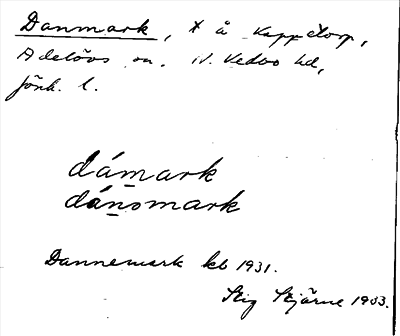 Danmark, x å Kappetorp,
Adelövs sn. N. Vedbo hd,
Jönk. l.
dámark
dánsmark
Dannemark kb 1931.
Stig Stjärne 1933.